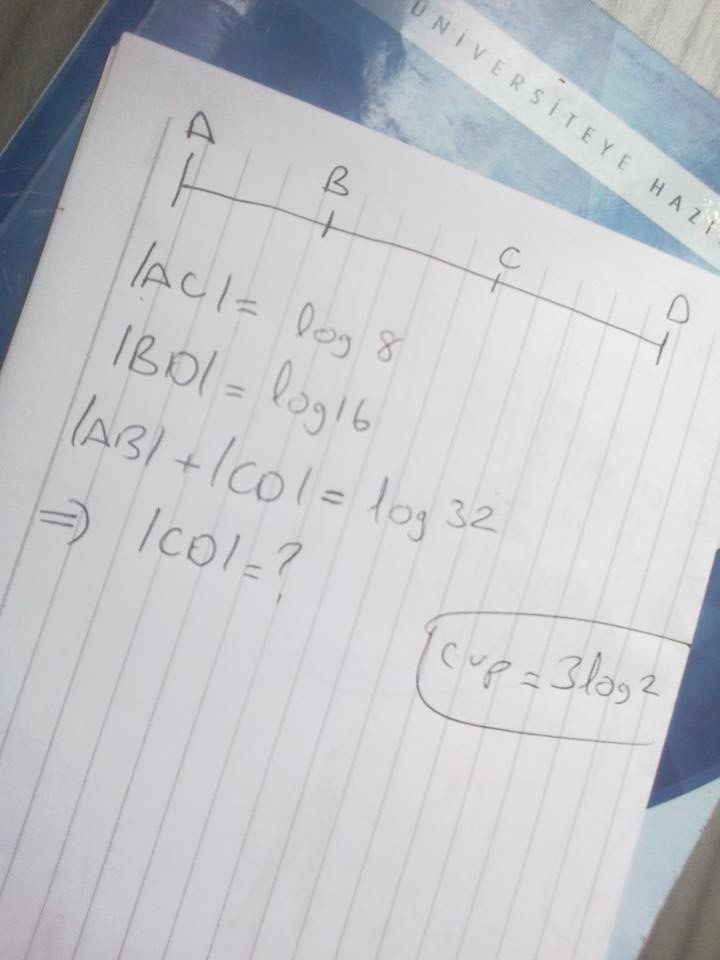 ÜNİVERSİTEYE HAZI
A
B
C
D
|AC| = log 8
|BD| = log 16
|AB| + |CD| = log 32
⇒ |CD| = ?
cvp = 3log2